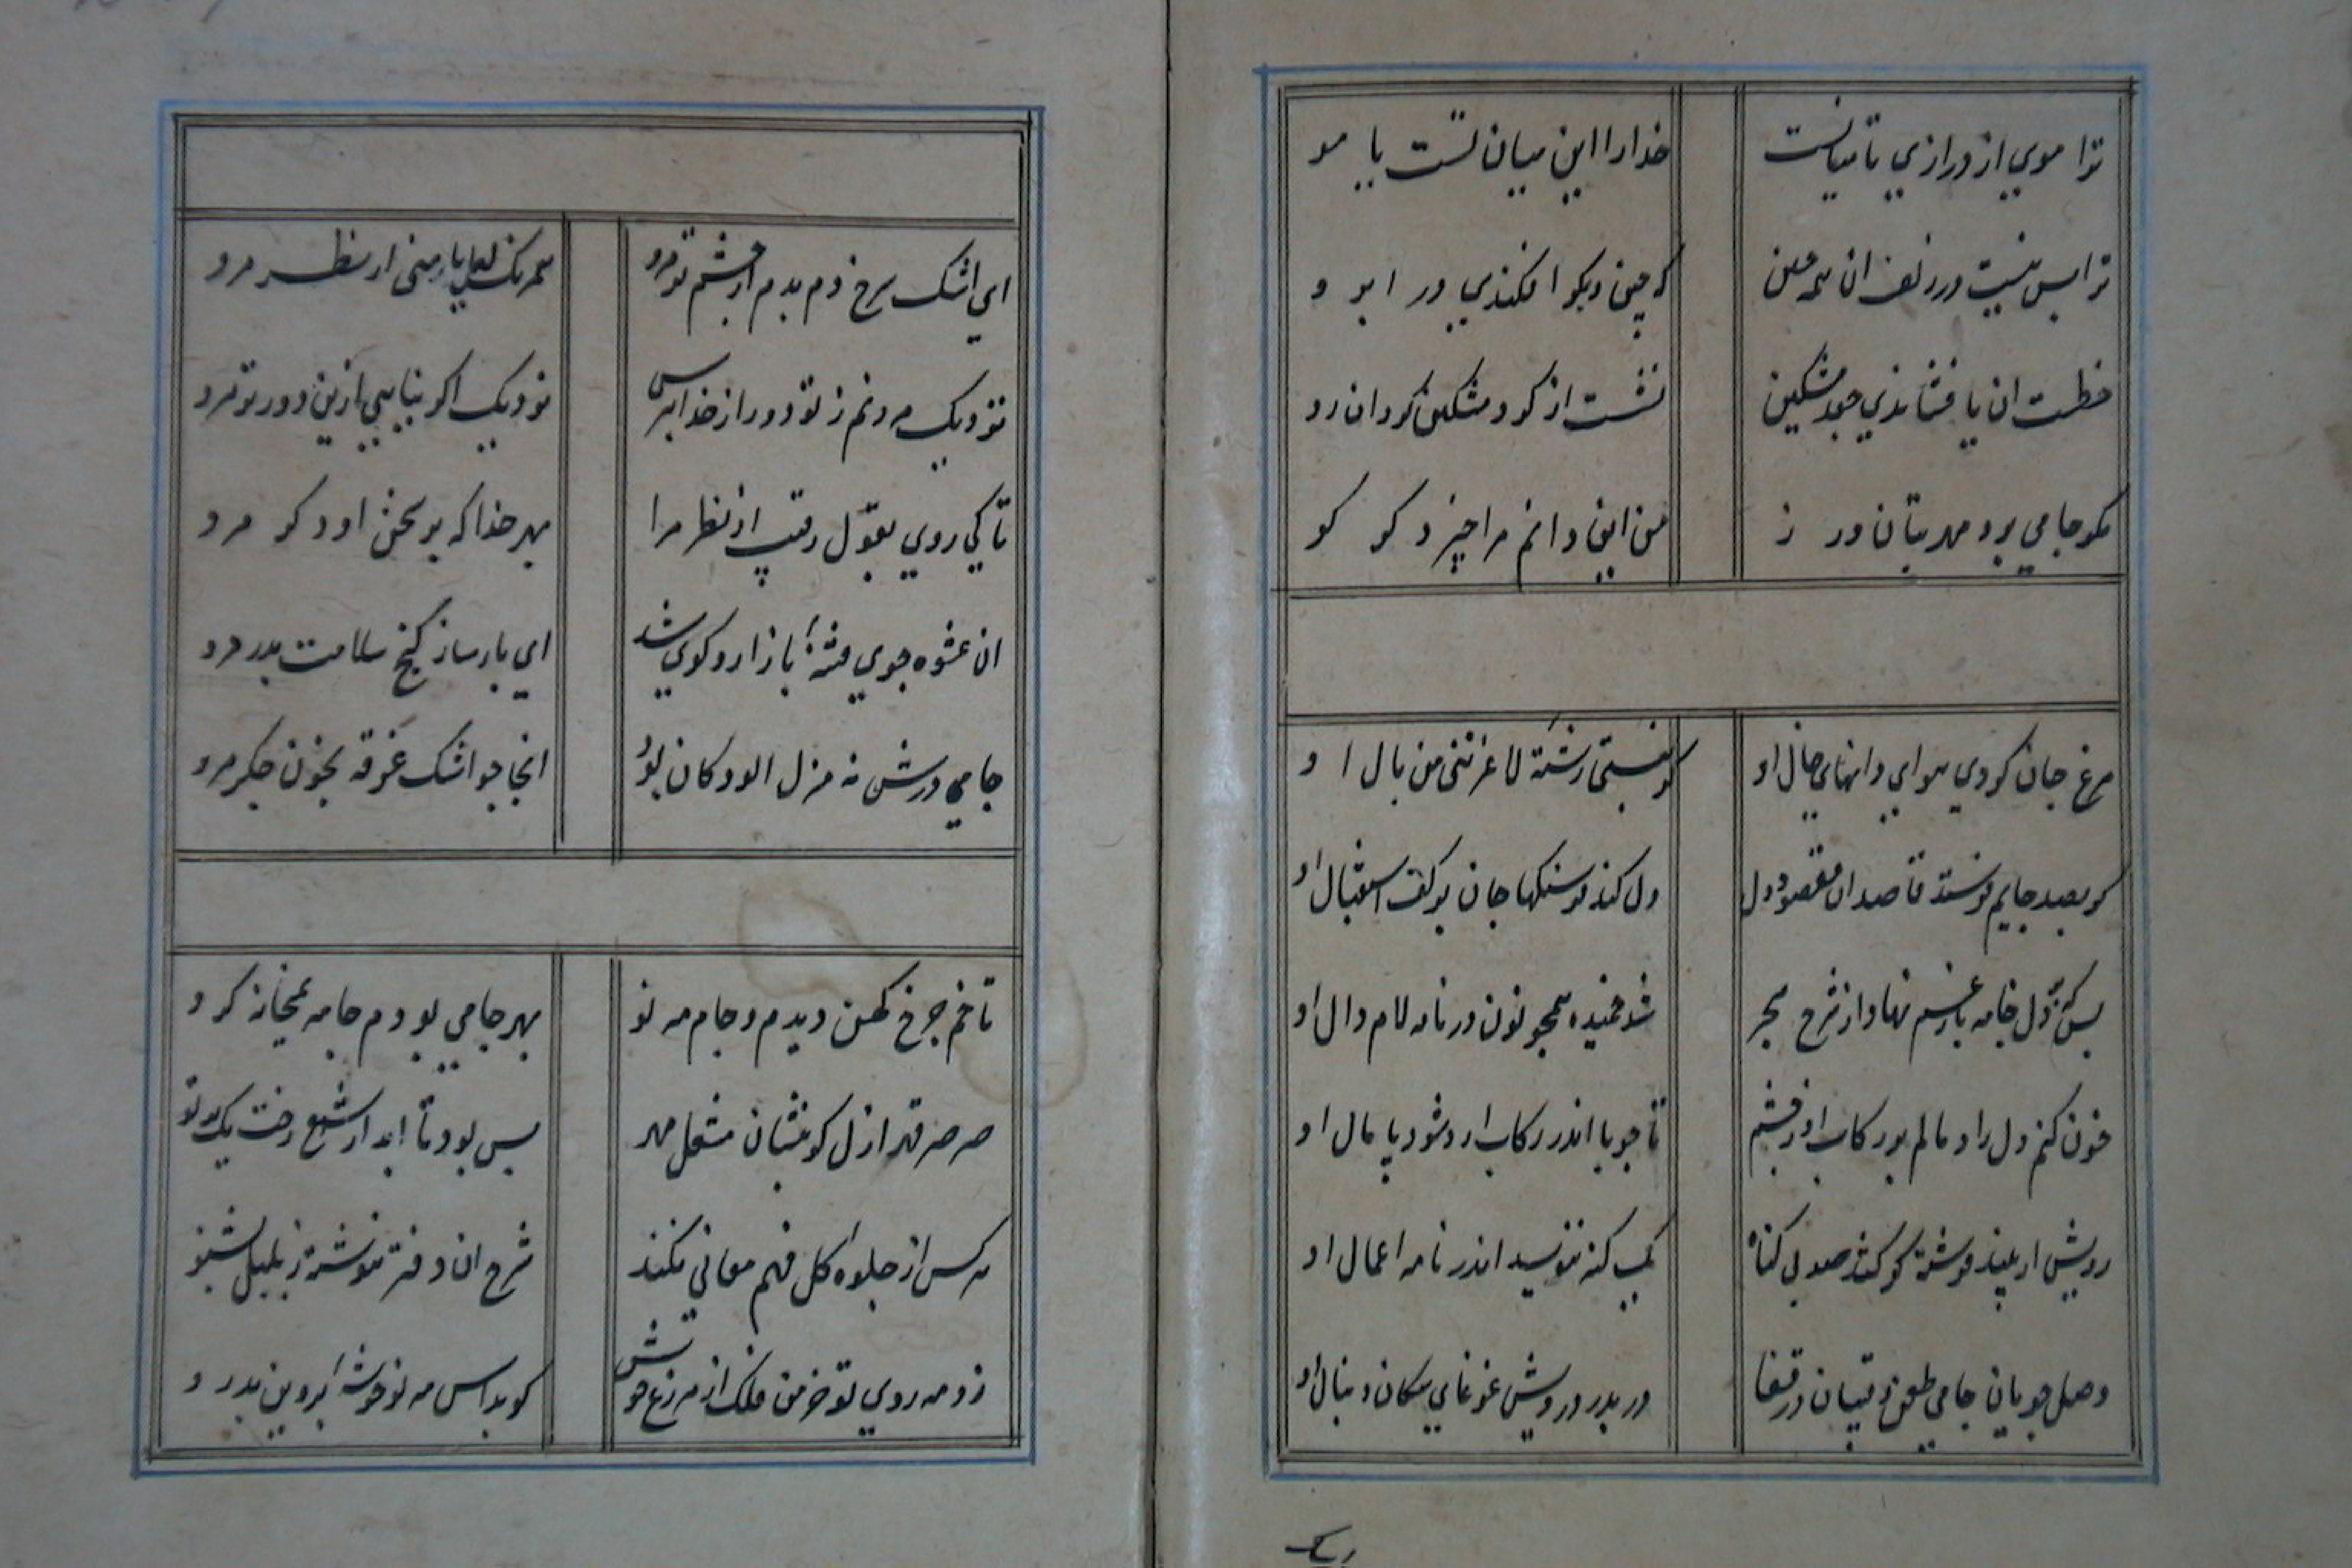 ترا موي از درازي تا میانست خدارا این میان تست یا مو
ترا بس نیست در زلف ان همه چین که چین دیکر افکندي در ابرو
خطست ان یا فشاندي جعد مشکین نشست از کرد مشکین کرد ان رو
مکو جامي برد مهر بتان ورز من این دانم مرا چیز دکر کو
مرغ جان کردي هواي دانهاي خال او کر نبستي رشته لاغر تني من بال او
کر بصد جایم فرستد قاصد ان مقصود دل دل کند فرسنکها جان بر کف استقبال او
بس که دل خامه بار غم نهاد از شرح هجر شد خمیده همچو نون در نامه لام و دال او
خون کنم دل را و مالم بر رکاب او ز چشم تا چو پا اندر رکاب ارد شود پامال او
رویش ار بیند فرشته کر کند صد بي کناه یک کنه ننویسد اندر نامه اعمال او
وصل جویان جامي و طعن رقیبان در قفا در بدر درویش غوغاي سکان دنبال او
اي اشک سرخ دم بدم از چشم تر مرو همرنک لعل یار مني از نظر مرو
نزدیک مردنم ز تو دور از خدا بترس نزدیک اکر نیایي ازین دورتر مرو
تا کي روي بقول رقیب از نظر مرا بهر خدا که بر سخن او دکر مرو
ان عشوه جوي فتنه بازار و کوي شد اي پارسا ز کنج سلامت بدر مرو
جامي درش نه منزل الودکان بود انجا چو اشک غرقه بخون جکر مرو
تا خم چرخ کهن دیدم و جام مه نو بهر جامي بودم جامه بمیخانه کرو
صرصر قهر ازل کو بنشان مشعل مهر بس بود تا ابد از شمع رخت یک پرتو
هرکس از جلوه کل فهم معاني نکند شرح ان دفتر ننوشته ز بلبل بشنو
زد مه روي تو خرمن فلک از مزرع خویش کو بداس مه نو خوشه پروین بدرو